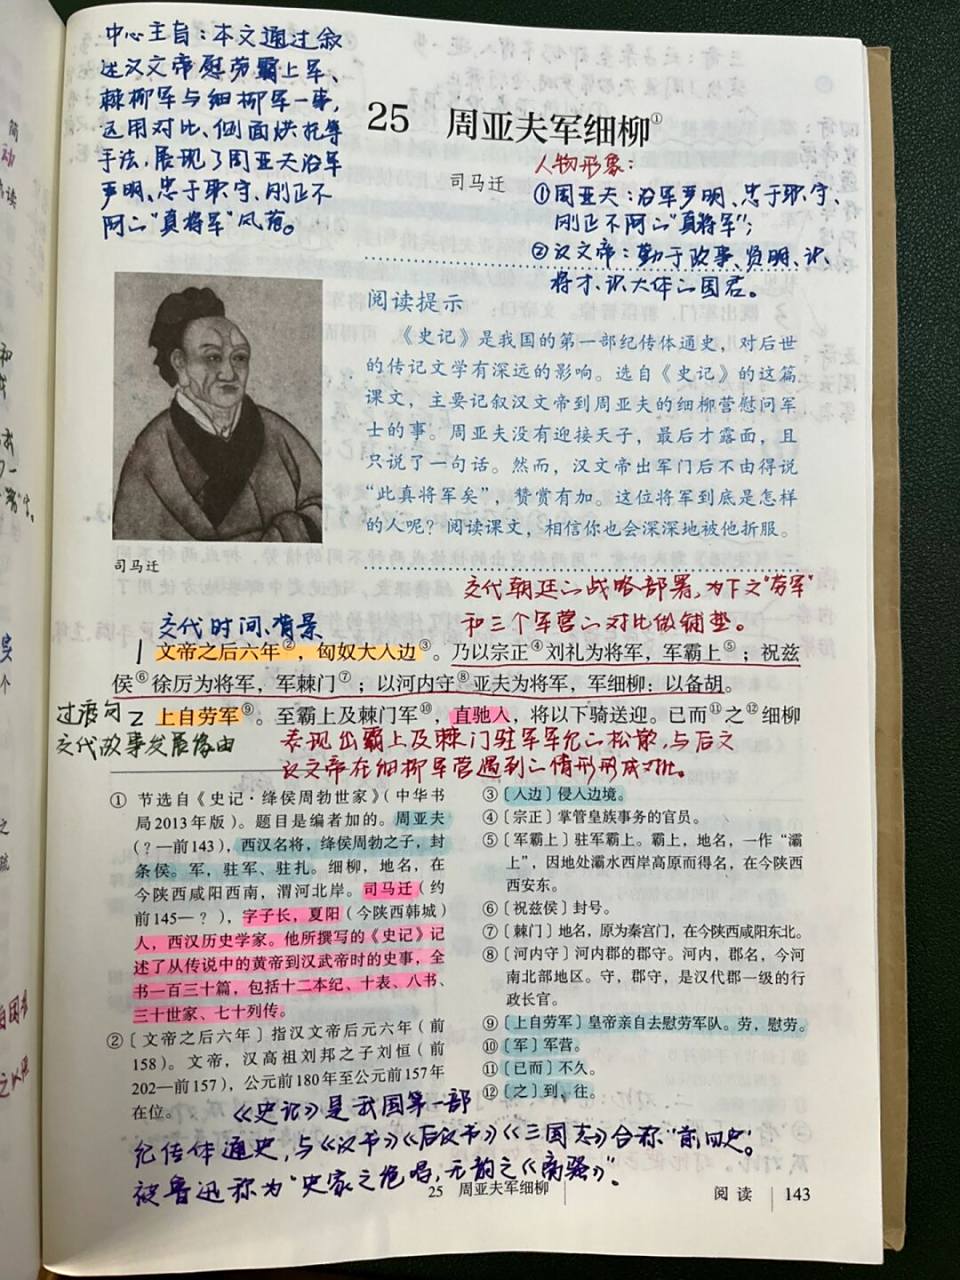 中心主旨：本文通过叙
述汉文帝慰劳霸上军、
棘柳军与细柳军一事，
运用对比、侧面烘托等
手法，展现了周亚夫治军
严明、忠于职守、刚正不
阿的“真将军”风范。
25 周亚夫军细柳①
司马迁
人物形象：
①周亚夫：治军严明、忠于职守、
刚正不阿的“真将军”；
②汉文帝：勤于政事、贤明、识
将才、识大体的国君。
阅读提示
《史记》是我国的第一部纪传体通史，对后世
的传记文学有深远的影响。选自《史记》的这篇
课文，主要记叙汉文帝到周亚夫的细柳营慰问军
士的事。周亚夫没有迎接天子，最后才露面，且
只说了一句话。然而，汉文帝出军门后不由得说
“此真将军矣”，赞赏有加。这位将军到底是怎样
的人呢？阅读课文，相信你也会深深地被他折服。
司马迁
交代朝廷的战略部署，为下文“劳军”
和三个军营的对比做铺垫。
交代时间、背景
1 文帝之后六年②，匈奴大入边③。乃以宗正④刘礼为将军，军霸上⑤；祝兹
侯⑥徐厉为将军，军棘门⑦；以河内守⑧亚夫为将军，军细柳：以备胡。
过渡句
交代故事发展缘由
2 上自劳军⑨。至霸上及棘门军⑩，直驰入，将以下骑送迎。已而⑪之⑫细柳
表现出霸上及棘门驻军军纪的松散，与后文
汉文帝在细柳军营遇到的情形形成对比。
① 节选自《史记·绛侯周勃世家》（中华书
局2013年版）。题目是编者加的。周亚夫
（？—前143），西汉名将，绛侯周勃之子，封
条侯。军，驻军、驻扎。细柳，地名，在
今陕西咸阳西南，渭河北岸。司马迁（约
前145—？），字子长，夏阳（今陕西韩城）
人，西汉历史学家。他所撰写的《史记》记
述了从传说中的黄帝到汉武帝时的史事，全
书一百三十篇，包括十二本纪、十表、八书、
三十世家、七十列传。
②〔文帝之后六年〕指汉文帝后元六年（前
158）。文帝，汉高祖刘邦之子刘恒（前
202—前157），公元前180年至公元前157年
在位。
③〔入边〕侵入边境。
④〔宗正〕掌管皇族事务的官员。
⑤〔军霸上〕驻军霸上。霸上，地名，一作“灞
上”，因地处灞水西岸高原而得名，在今陕西
西安东。
⑥〔祝兹侯〕封号。
⑦〔棘门〕地名，原为秦宫门，在今陕西咸阳东北。
⑧〔河内守〕河内郡的郡守。河内，郡名，今河
南北部地区。守，郡守，是汉代郡一级的行
政长官。
⑨〔上自劳军〕皇帝亲自去慰劳军队。劳，慰劳。
⑩〔军〕军营。
⑪〔已而〕不久。
⑫〔之〕到，往。
《史记》是我国第一部
纪传体通史，与《汉书》《后汉书》《三国志》合称“前四史”。
被鲁迅称为“史家之绝唱，无韵之《离骚》”。
25 周亚夫军细柳
阅读 143